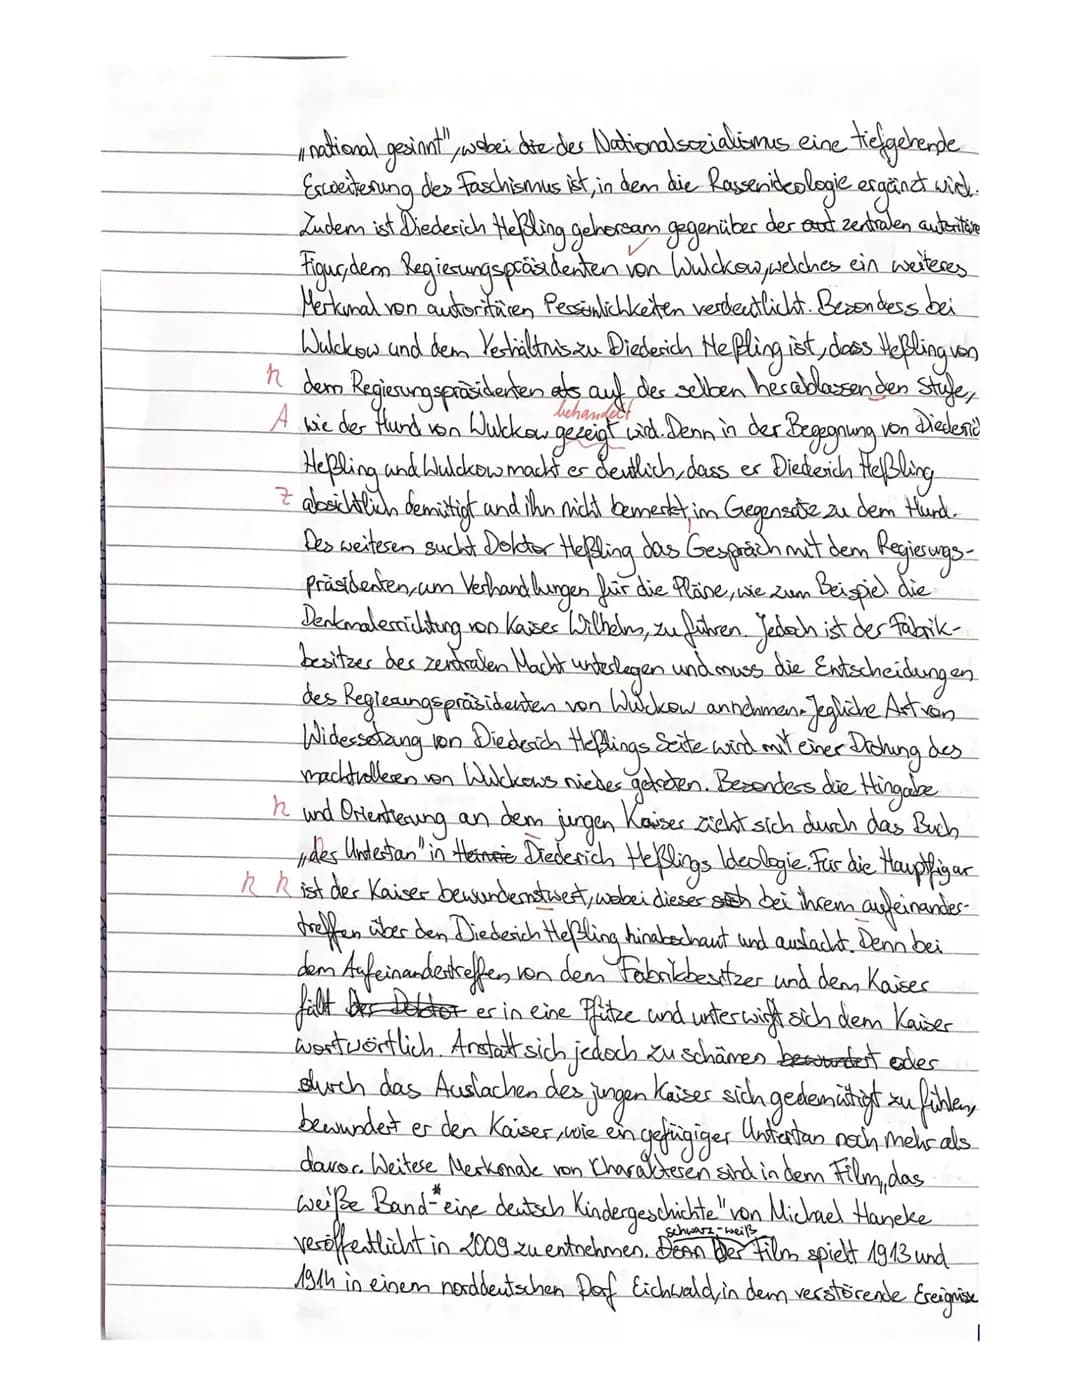 „national gesinnt", wobei die des Nationalsozialismus eine tiefgehende
Erweiterung des Faschismus ist, in dem die Rassenideologie ergänzt wird.
Zudem ist Diederich Heßling gehorsam gegenüber der aut zentralen autoritäre
Figur, dem Regierungspräsidenten von Wulckow, welches ein weiteres
Merkmal von autoritären Persönlichkeiten verdeutlicht. Besonders bei
Wulckow und dem Verhältnis zu Diederich Heßling ist, dass Heßling von
h dem Regierungspräsidenten als auf der selben herablassenden Stufe,
behandelt
A wie der Hund von Wulckow gezeigt wird. Denn in der Begegnung von Diederich
Heßling und Wulckow macht er deutlich, dass er Diederich Heßling
Z absichtlich demütigt und ihn nicht bemerkt, im Gegensatz zu dem Hund.
Des weiteren sucht Doktor Heßling das Gespräch mit dem Regierungs-
präsidenten, um Verhandlungen für die Pläne, wie zum Beispiel die
Denkmalerrichtung von Kaiser Wilhelm, zu führen. Jedoch ist der Fabrik-
besitzer der zentralen Macht unterlegen und muss die Entscheidungen
des Regierungspräsidenten von Wulckow annehmen. Jegliche Art von
Widersetzung von Diederich Heßlings Seite wird mit einer Drohung des
machtvolleren von Wulckows nieder getreten. Besonders die Hingabe
h und Orientierung an dem jungen Kaiser zieht sich durch das Buch
„der Untertan" in Heinric Diederich Heßlings Ideologie. Für die Hauptfigur
h h ist der Kaiser bewundernstwert, wobei dieser sich bei ihrem aufeinander-
treffen über den Diederich Heßling hinabschaut und auslacht. Denn bei
dem Aufeinandertreffen von dem Fabrikbesitzer und dem Kaiser
fält Der Doktor er in eine Pfütze und unterwirft sich dem Kaiser
wortwörtlich. Anstatt sich jedoch zu schämen bewundert oder
durch das Auslachen des jungen Kaiser sich gedemütigt zu fühlen,
bewundert er den Kaiser, wie ein gefügiger Untertan noch mehr als
davor. Weitere Merkmale von Charakteren sind in dem Film „das
weiße Band-* eine deutsch Kindergeschichte" von Michael Haneke
schwarz-weiß
veröffentlicht in 2009 zu entnehmen. Denn Der Film spielt 1913 und
1914 in einem norddeutschen Dorf Eichwald, in dem verstörende Ereignisse